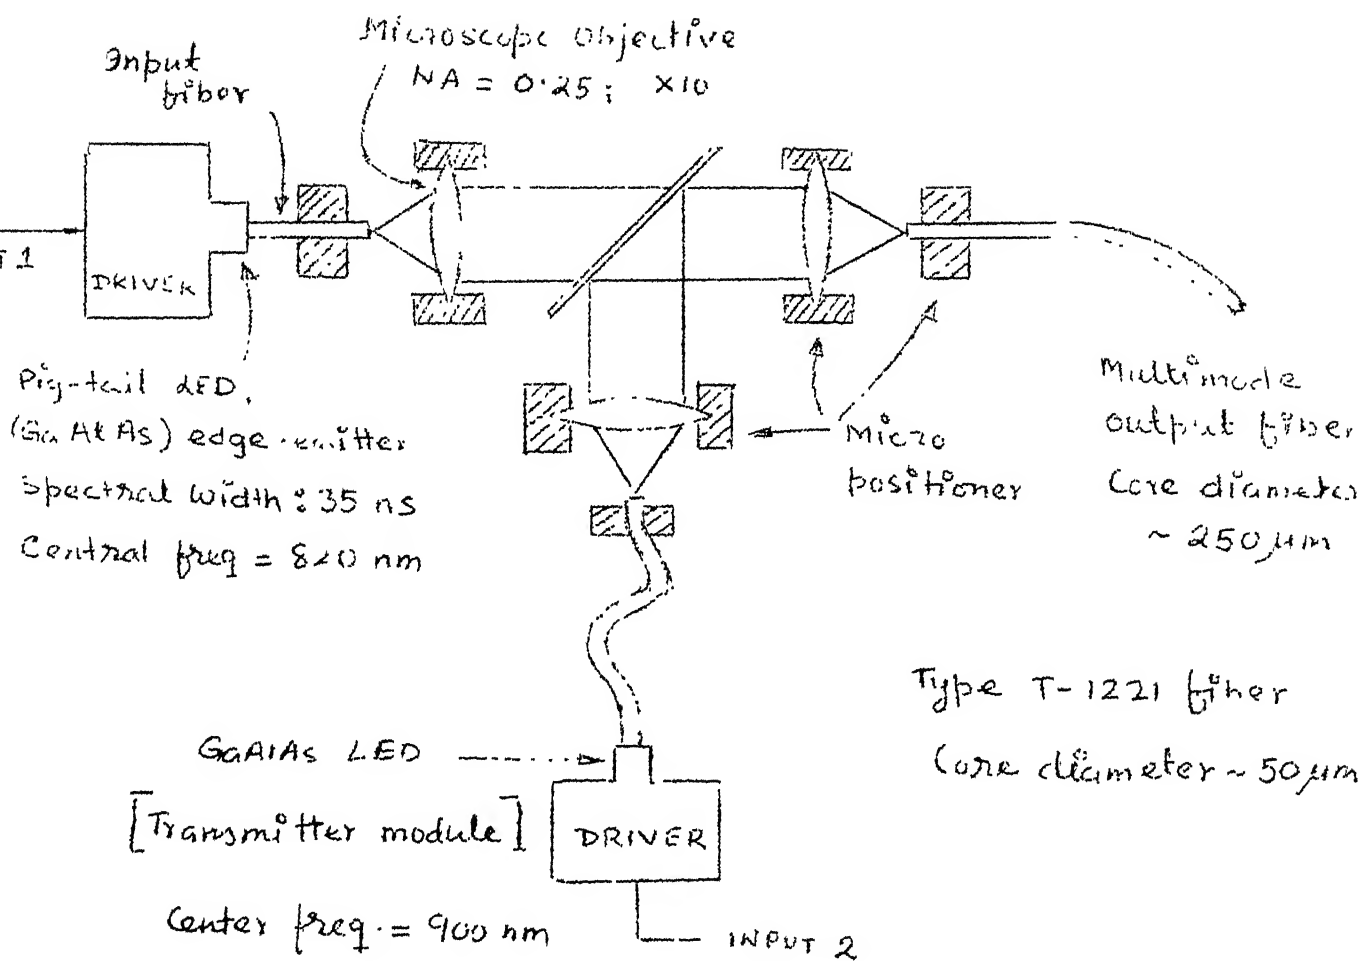 Microscope objective
NA = 0.25; X10
Input
fiber
T 1
DRIVER
Pig-tail LED,
(Ga Al As) edge-emitter
Spectral width: 35 ns
Central freq = 820 nm
Micro
positioner
Multimode
output fiber
Core diameter
~ 250 µm
Type T-1221 fiber
Core diameter ~ 50 µm
GaAlAs LED
[Transmitter module]
DRIVER
Center freq. = 900 nm
INPUT 2